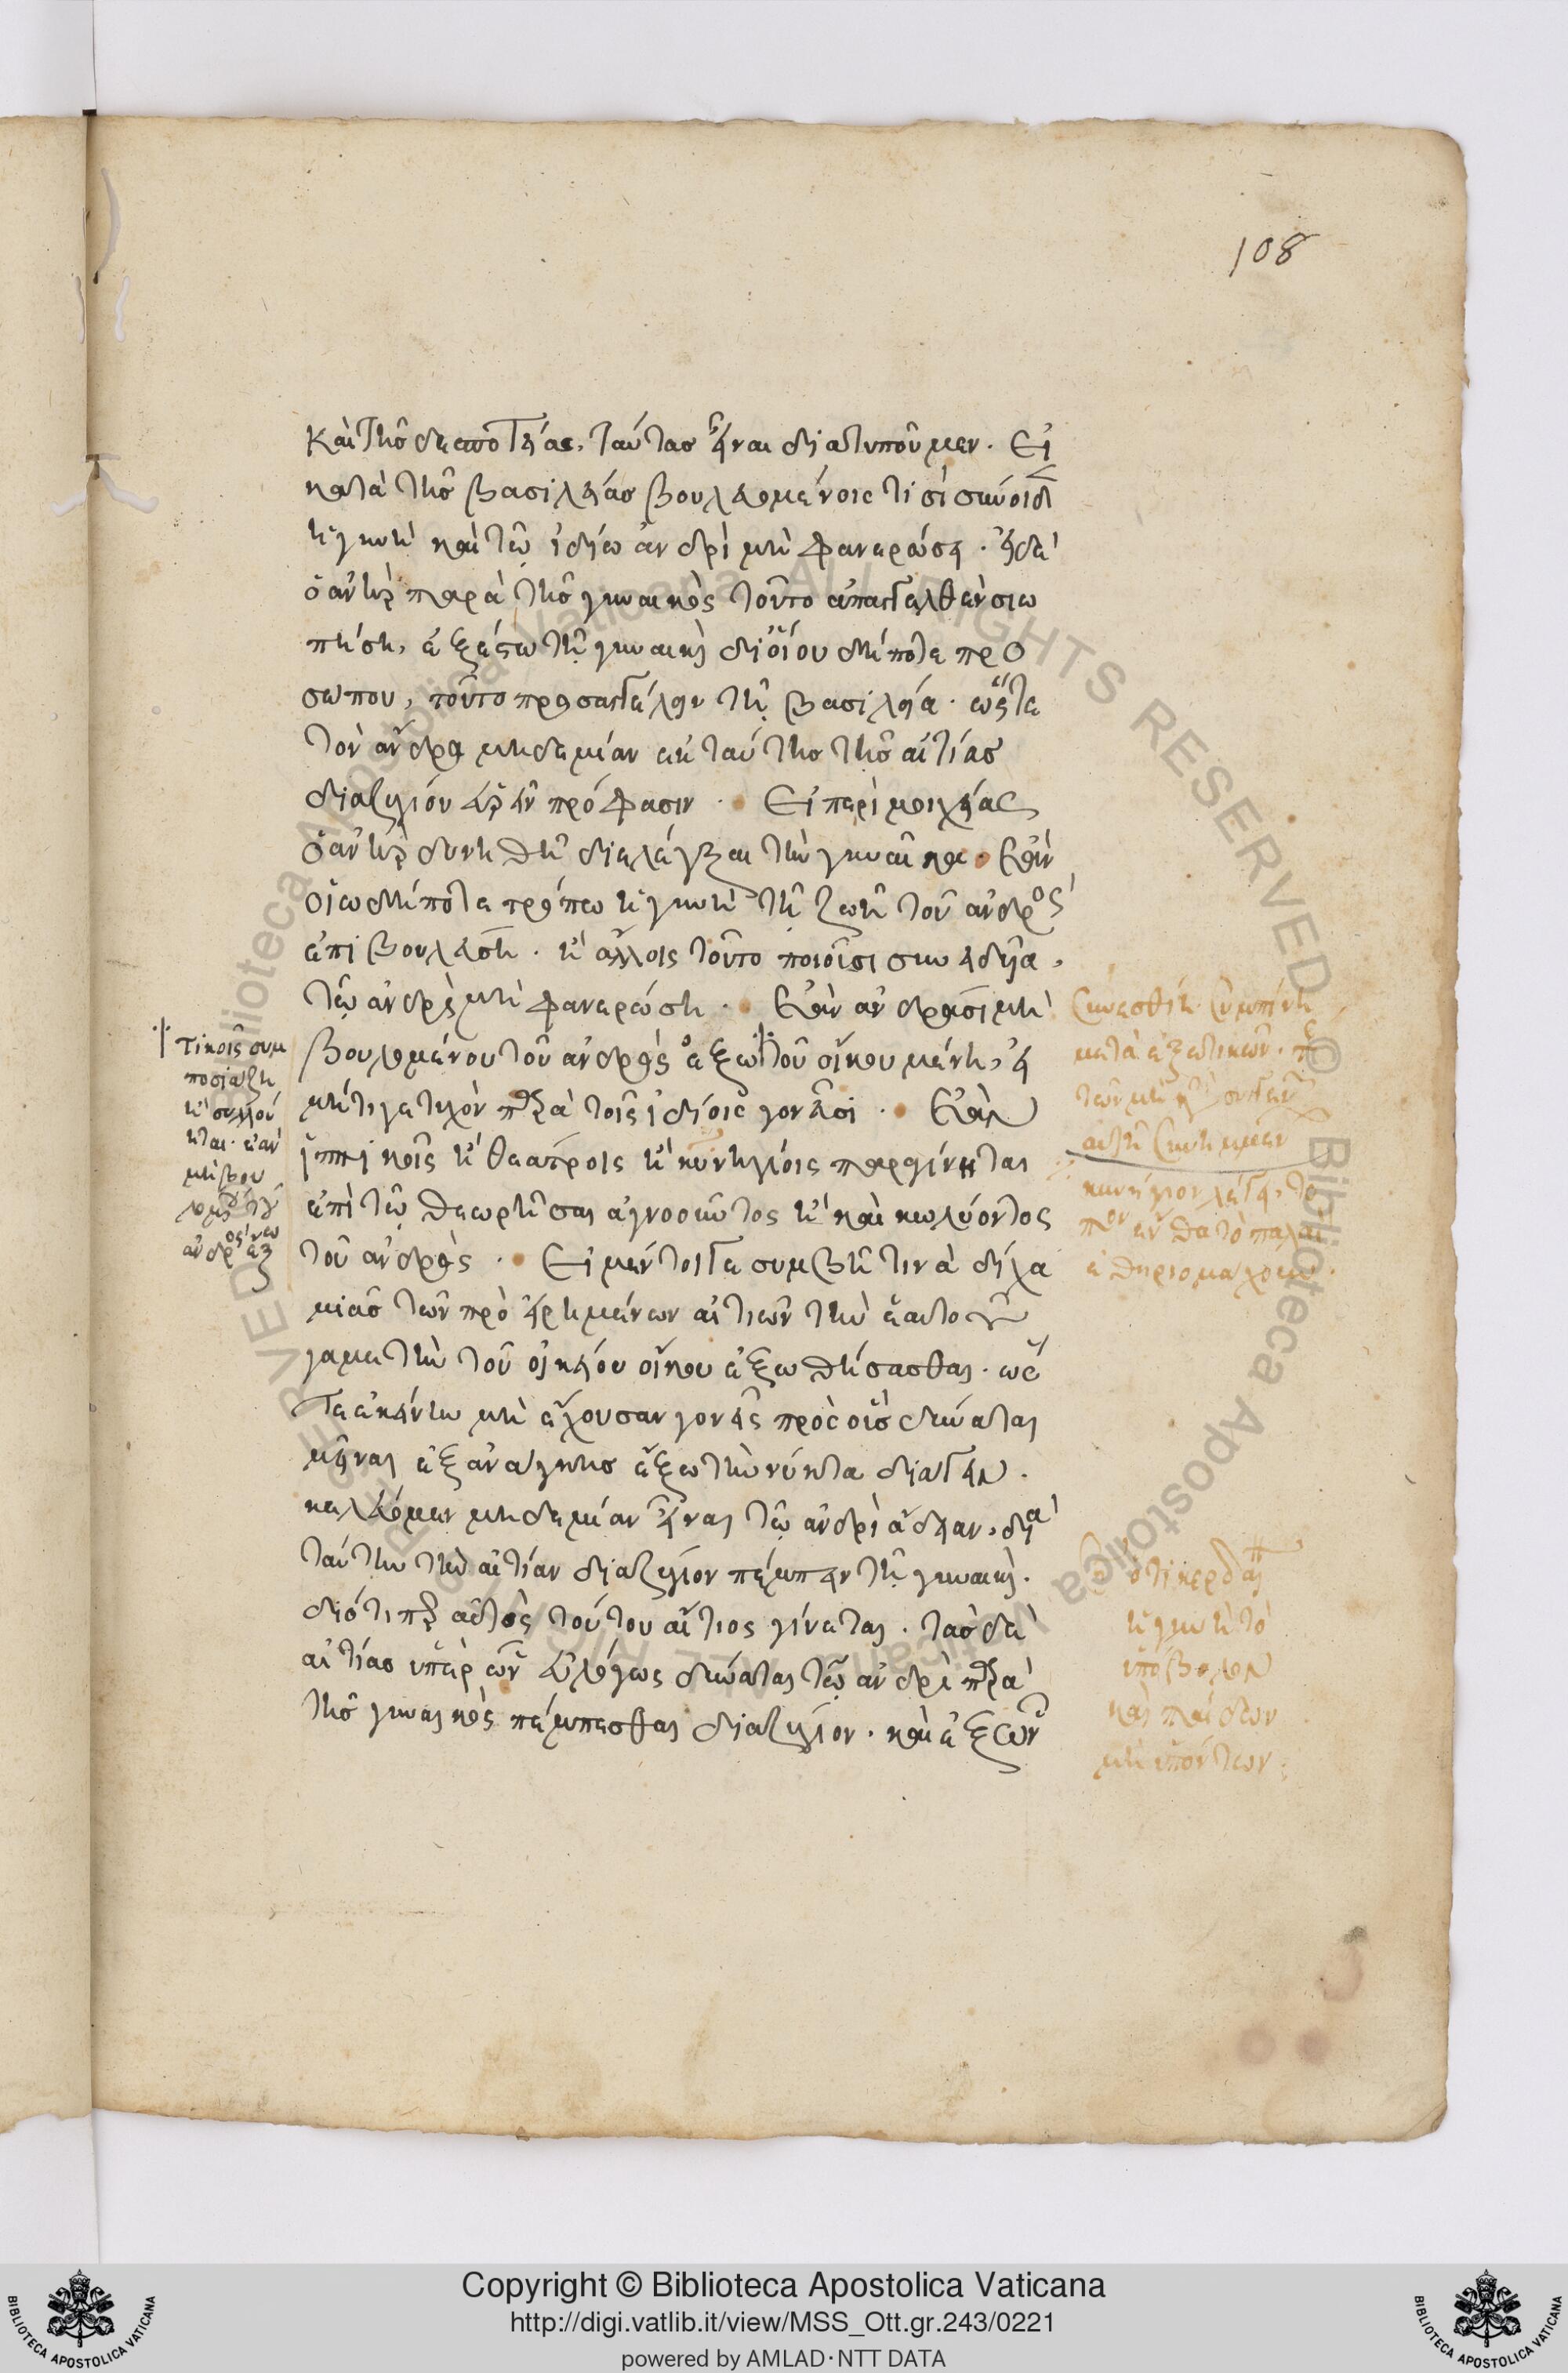 108
καὶ τῆς δεσποτείας, ταύτας εἶναι διατυποῦμεν. Εἰ
κατὰ τῆς βασιλείας βουλευομένοις τισὶ συνοῖδ
ἡ γυνὴ καὶ τῶ ἰδίω ἀνδρὶ μὴ φανερώσει. εἰ δὲ
ὁ ἀνὴρ παρὰ τῆς γυναικὸς τοῦτο ἀπαγγελθὲν σιω
πήση, ἐξέστω τῆ γυναικὶ δι' οἵου δήποτε προ
σώπου, τοῦτο προσαγγέλειν τῆ βασιλεία. ὥστε
τὸν ἄνδρα μηδεμίαν ἐκ ταύτης τῆς αἰτίας
διαζυγίου εὑρεῖν πρόφασιν. Εἰ περὶ μοιχείας
ὁ ἀνὴρ δυνηθῆ διελέγξαι τὴν γυναῖκα. Ἐὰν
οἵω δήποτε τρόπω ἡ γυνὴ τῆ ζωῆ τοῦ ἀνδρὸς
ἐπιβουλεύση. ἢ ἄλλοις τοῦτο ποιοῦσι συνειδυῖα,
τῶ ἀνδρὶ μὴ φανερώση. Ἐὰν ἀνδράσι μὴ
βουλομένου τοῦ ἀνδρὸς ἔξω τοῦ οἴκου μένη, εἰ
μήτιγε τυχὸν παρὰ τοῖς ἰδίοις γονεῦσι. Ἐὰν
ἱππικοῖς ἢ θεάτροις ἢ κυνηγίοις παραγίνηται
ἐπὶ τῶ θεωρῆσαι ἀγνοοῦντος ἢ καὶ κωλύοντος
τοῦ ἀνδρός. Εἰ μέντοιγε συμβῆ τινὰ δίχα
μιᾶς τῶν προειρημένων αἰτιῶν τὴν ἑαυτοῦ
γαμετὴν τοῦ οἰκείου οἴκου ἐξωθήσασθαι. ὥσ
τε ἐκείνην μὴ ἔχουσαν γονεῖς πρὸς οὓς δύναται
μεῖναι ἐξ ἀνάγκης ἔξω τὴν νύκτα διάγειν.
κελεύομεν μηδεμίαν εἶναι τῶ ἀνδρὶ ἄδειαν, διὰ
ταύτην τὴν αἰτίαν διαζύγιον πέμπειν τῆ γυναικί.
διότιπερ αὐτὸς τούτου αἴτιος γίνεται. τὰς δὲ
αἰτίας ὑπὲρ ὧν εὐλόγως δύναται τῶ ἀνδρὶ παρὰ
τῆς γυναικὸς πέμπεσθαι διαζύγιον. καὶ ἐξ ὧν
τικοῖς συμ
ποσιάζη
ἢ συλλού
ηται. ἐὰν
μὴ βου
λομένου τοῦ
ἀνδρὸς
συνεσθίη. συμπίνη
μετὰ ἐξωτικῶν.
τῶν μὴ
αὐτῆ
κυνήγιον λέγει, τὸ
ἔνθα τὸ παλαι
ἐθηριομάχουν.
ὅτι κερδαί
ἡ γυνὴ τὸ
ὑπόβολον
καὶ παίδων
μὴ ὑπόντων.
Copyright © Biblioteca Apostolica Vaticana
http://digi.vatlib.it/view/MSS_Ott.gr.243/0221
powered by AMLAD·NTT DATA
BIBLIOTECA APOSTOLICA VATICANA
BIBLIOTECA APOSTOLICA VATICANA